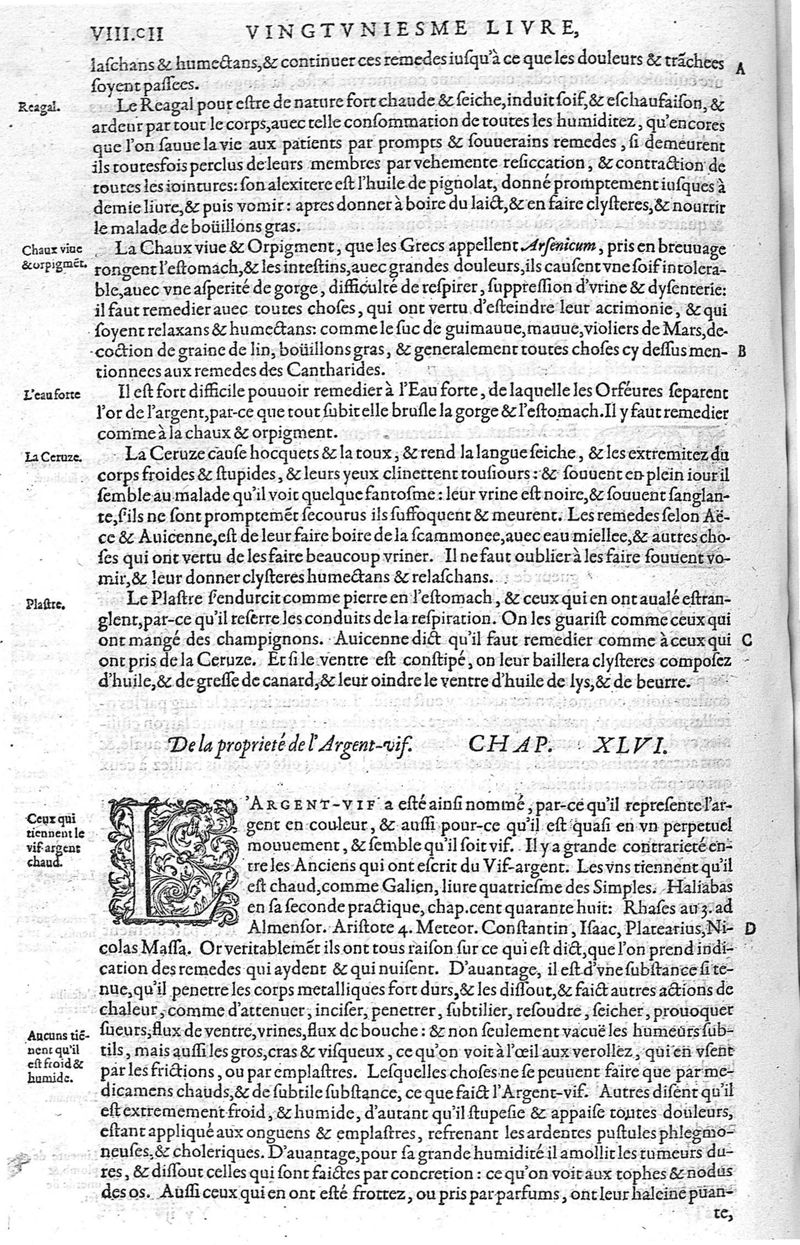 VIII.CII
VINGTVNIESME LIVRE,
laſchans & humectans,& continuer ces remedes iuſqu'à ce que les douleurs & trãchees
A
ſoyent paſſees.
Reagal.
Le Reagal pour eſtre de nature fort chaude & ſeiche, induit ſoif,& eſchaufaiſon, &
ardeur par tout le corps,auec telle conſommation de toutes les humiditez, qu'encores
que l'on ſauue la vie aux patients par prompts & ſouuerains remedes, ſi demeurent
ils toutesfois perclus de leurs membres par vehemente reſiccation, & contraction de
toutes les iointures: ſon alexitere eſt l'huile de pignolat, donné promptement iuſques à
demie liure,& puis vomir: apres donner à boire du laict,& en faire clyſteres,& nourrir
le malade de boüillons gras.
Chaux viue
& orpigmẽt.
La Chaux viue & Orpigment, que les Grecs appellent Arſenicum, pris en breuuage
rongent l'eſtomach,& les inteſtins,auec grandes douleurs,ils cauſent vne ſoif intolera-
ble,auec vne aſperité de gorge, difficulté de reſpirer, ſuppreſſion d'vrine & dyſenterie:
il faut remedier auec toutes choſes, qui ont vertu d'eſteindre leur acrimonie, & qui
ſoyent relaxans & humectans: comme le ſuc de guimauue, mauue, violiers de Mars, de-
coction de graine de lin, boüillons gras, & generalement toutes choſes cy deſſus men-
B
tionnees aux remedes des Cantharides.
L'eau forte
Il eſt fort difficile pouuoir remedier à l'Eau forte, de laquelle les Orféures ſeparent
l'or de l'argent,par-ce que tout ſubit elle bruſle la gorge & l'eſtomach. Il y faut remedier
comme à la chaux & orpigment.
La Ceruze.
La Ceruze cauſe hocquets & la toux, & rend la langue ſeiche, & les extremitez du
corps froides & ſtupides, & leurs yeux clinettent touſiours: & ſouuent en plein iour il
ſemble au malade qu'il voit quelque fantoſme: leur vrine eſt noire,& ſouuent ſanglan-
te,ſ'ils ne ſont promptemẽt ſecourus ils ſuffoquent & meurent. Les remedes ſelon Aë-
ce & Auicenne,eſt de leur faire boire de la ſcammonee, auec eau miellee,& autres cho-
ſes qui ont vertu de les faire beaucoup vriner. Il ne faut oublier à les faire ſouuent vo-
mir,& leur donner clyſteres humectans & relaſchans.
Plaſtre.
Le Plaſtre ſ'endurcit comme pierre en l'eſtomach, & ceux qui en ont aualé eſtran-
glent,par-ce qu'il reſerre les conduits de la reſpiration. On les guariſt comme ceux qui
ont mangé des champignons. Auicenne dict qu'il faut remedier comme à ceux qui
C
ont pris de la Ceruze. Et ſi le ventre eſt conſtipé, on leur baillera clyſteres compoſez
d'huile,& de greſſe de canard,& leur oindre le ventre d'huile de lys,& de beurre.
De la proprieté de l'Argent-vif. CHAP. XLVI.
Ceux qui
tiennent le
vif argent
chaud.
L'ARGENT-VIF a eſté ainſi nommé, par-ce qu'il repreſente l'ar-
gent en couleur, & auſſi pour-ce qu'il eſt quaſi en vn perpetuel
mouuement, & ſemble qu'il ſoit vif. Il y a grande contrarieté en-
tre les Anciens qui ont eſcrit du Vif-argent. Les vns tiennent qu'il
eſt chaud,comme Galien, liure quatrieſme des Simples. Haliabas
en ſa ſeconde practique, chap.cent quarante huit: Rhaſes au 3. ad
Almenſor. Ariſtote 4. Meteor. Conſtantin, Iſaac, Platearius, Ni-
D
colas Maſſa. Or veritablemẽt ils ont tous raiſon ſur ce qui eſt dict,que l'on prend indi-
cation des remedes qui aydent & qui nuiſent. D'auantage, il eſt d'vne ſubſtance ſi te-
nue,qu'il penetre les corps metalliques fort durs,& les diſſout,& faict autres actions de
chaleur, comme d'attenuer, inciſer, penetrer, ſubtilier, reſoudre, ſeicher, prouoquer
Aucuns tiẽ-
nent qu'il
eſt froid &
humide.
ſueurs,flux de ventre,vrines,flux de bouche: & non ſeulement vacuë les humeurs ſub-
tils, mais auſſi les gros,cras & viſqueux, ce qu'on voit à l'œil aux verollez, qui en vſent
par les frictions, ou par emplaſtres. Leſquelles choſes ne ſe peuuent faire que par me-
dicamens chauds,& de ſubtile ſubſtance, ce que faict l'Argent-vif. Autres diſent qu'il
eſt extremement froid, & humide, d'autant qu'il ſtupefie & appaiſe toutes douleurs,
eſtant appliqué aux onguens & emplaſtres, refrenant les ardentes puſtules phlegmo-
neuſes,& choleriques. D'auantage,pour ſa grande humidité il amollit les tumeurs du-
res, & diſſout celles qui ſont faictes par concretion: ce qu'on voit aux tophes & nodus
des os. Auſſi ceux qui en ont eſté frottez, ou pris par parfums, ont leur haleine püan-
te,